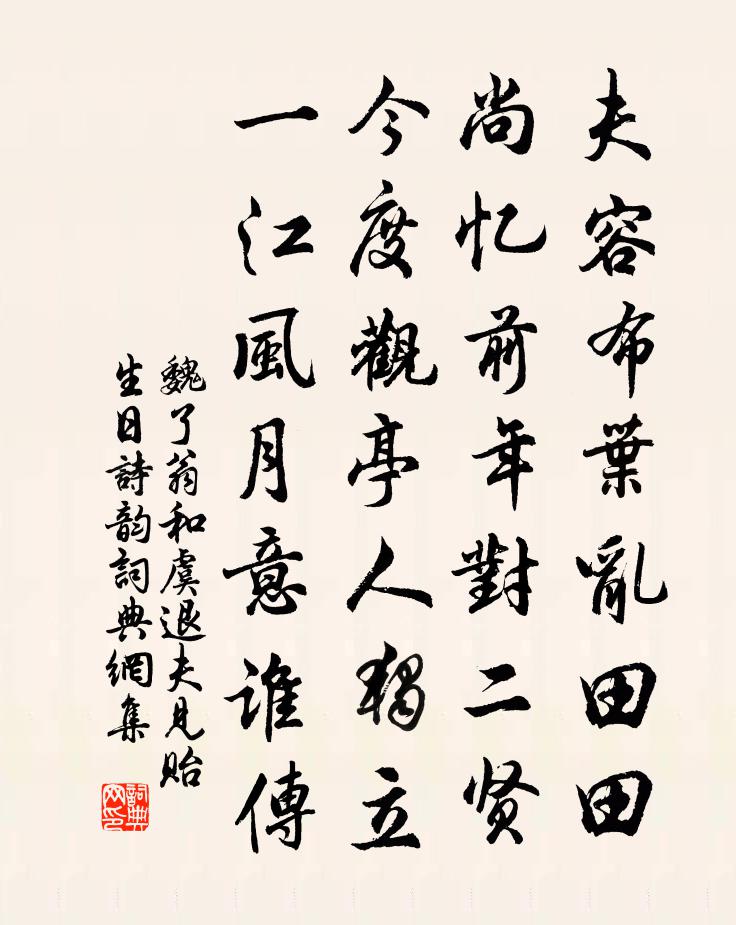 夫容布葉亂田田
尚忆前年對二贤
今度觀亭人獨立
一江風月意谁傳
魏了翁和虞退夫見贻
生日詩韵詞典網集
詞典网印